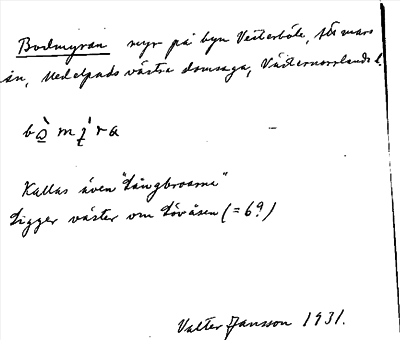 Bodmyran myr på byn Västerböle,
än, Medelpads västra domsaga, Västernorrlands l.
Kallas även "Långbroarna"
Ligger väster om Lövåsen (= 69)
Valter Jansson 1931.